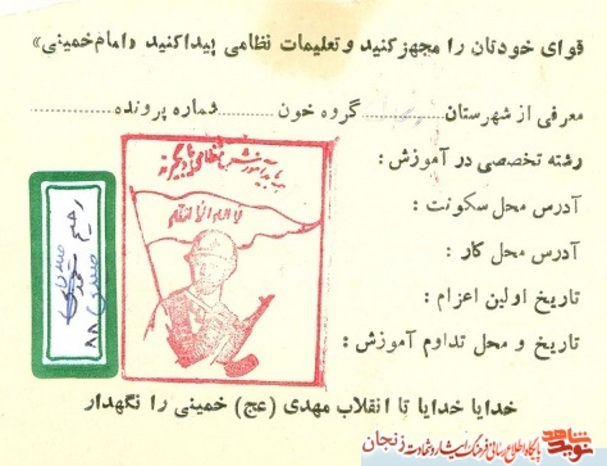 قوای خودتان را مجهز کنید و تعلیمات نظامی پیدا کنید «امام خمینی»
معرفی از شهرستان.......... گروه خون .......... شماره پرونده ..........
رشته تخصصی در آموزش :
آدرس محل سکونت :
آدرس محل کار :
تاریخ اولین اعزام :
تاریخ و محل تداوم آموزش :
لا اله الا الله
رحیم
۸۸
خدایا خدایا تا انقلاب مهدی (عج) خمینی را نگهدار
نوید شاهد
پایگاه اطلاع رسانی فرهنگ ایثار و شهادت زنجان